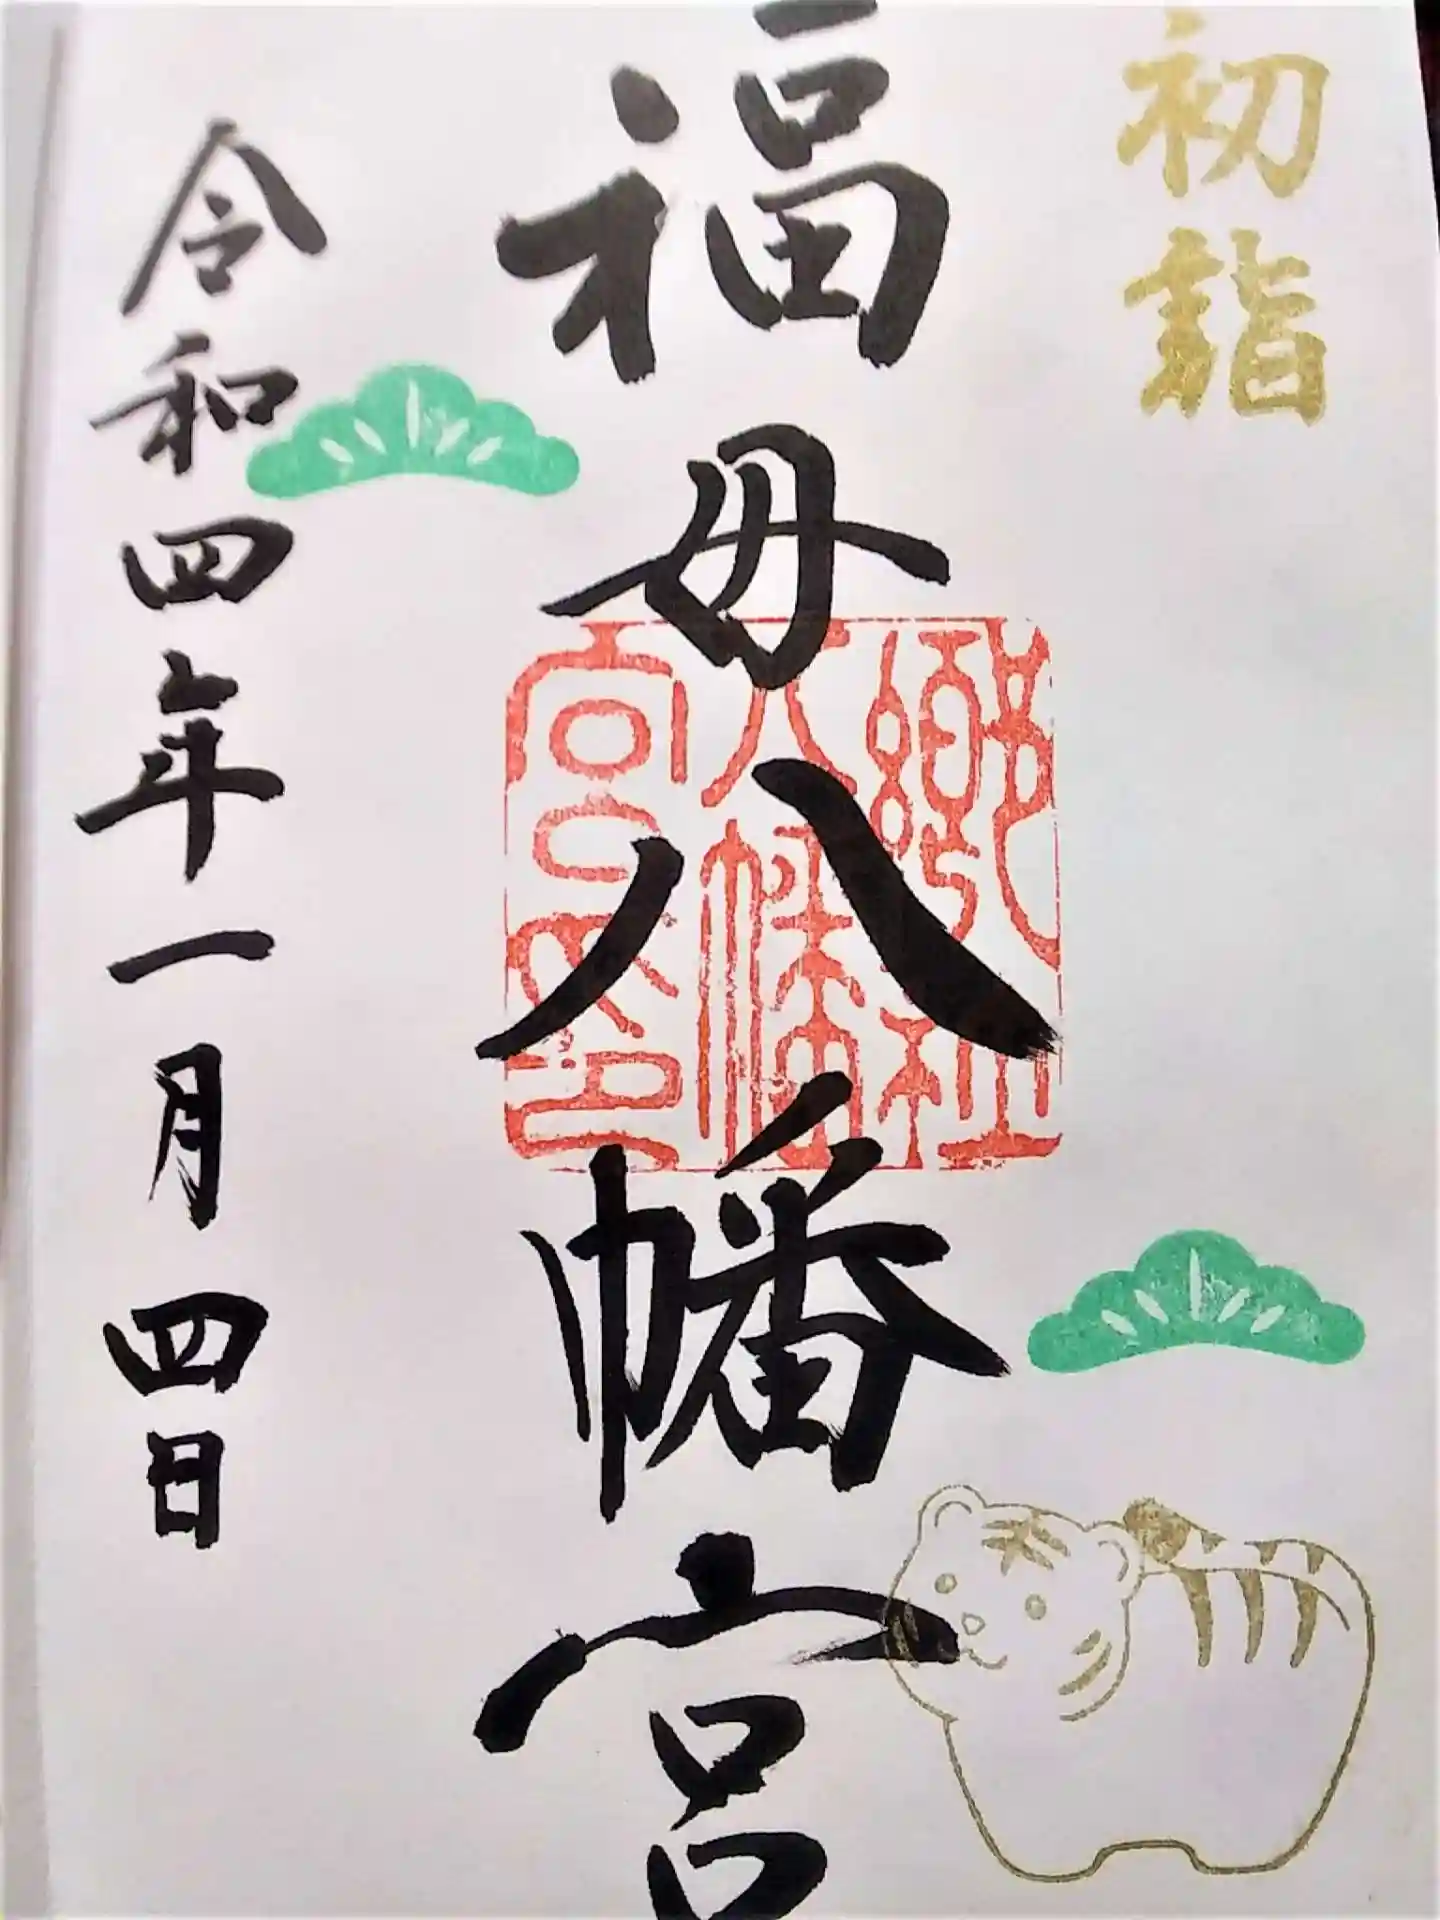 初詣
福母八幡宮
郷社
八幡
宮之印
令和四年一月四日